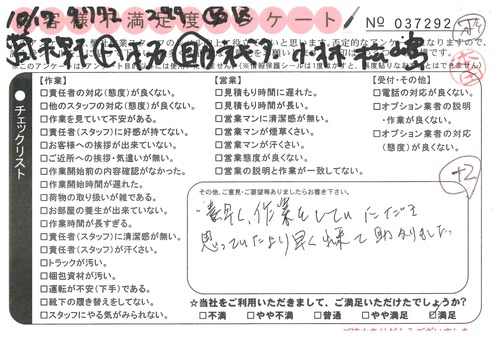 お客様不満足度アンケート
No 037292
チェックリスト
【作業】
□責任者の対応(態度)が良くない。
□他のスタッフの対応(態度)が良くない。
□作業を見ていて不安がある。
□責任者(スタッフ)に好感が持てない。
□お客様への挨拶が出来ていない。
□ご近所への挨拶・気遣いが無い。
□作業開始前の内容確認がなかった。
□作業開始時間が遅れた。
□荷物の取り扱いが雑である。
□お部屋の養生が出来ていない。
□作業時間が長すぎる。
□責任者(スタッフ)に清潔感が無い。
□責任者(スタッフ)が汗くさい。
□トラックが汚い。
□梱包資材が汚い。
□運転が不安(下手)である。
□靴下の履き替えをしてない。
□スタッフにやる気がみられない。
【営業】
□見積もり時間に遅れた。
□見積もり時間が長い。
□営業マンに清潔感が無い。
□営業マンが煙草くさい。
□営業マンが汗くさい。
□営業態度が良くない。
□営業の説明と作業が一致してない。
【受付・その他】
□電話の対応が良くない。
□オプション業者の説明
・作業が良くない。
□オプション業者の対応
(態度)が良くない。
+2
その他、ご意見・ご要望等ありましたらお書き下さい。
素早く、作業をしていただき
思っていたより早く出来て助かりました。
☆当社をご利用いただきまして、ご満足いただけたでしょうか?
□不満 □やや不満 □普通 □やや満足 ☑満足